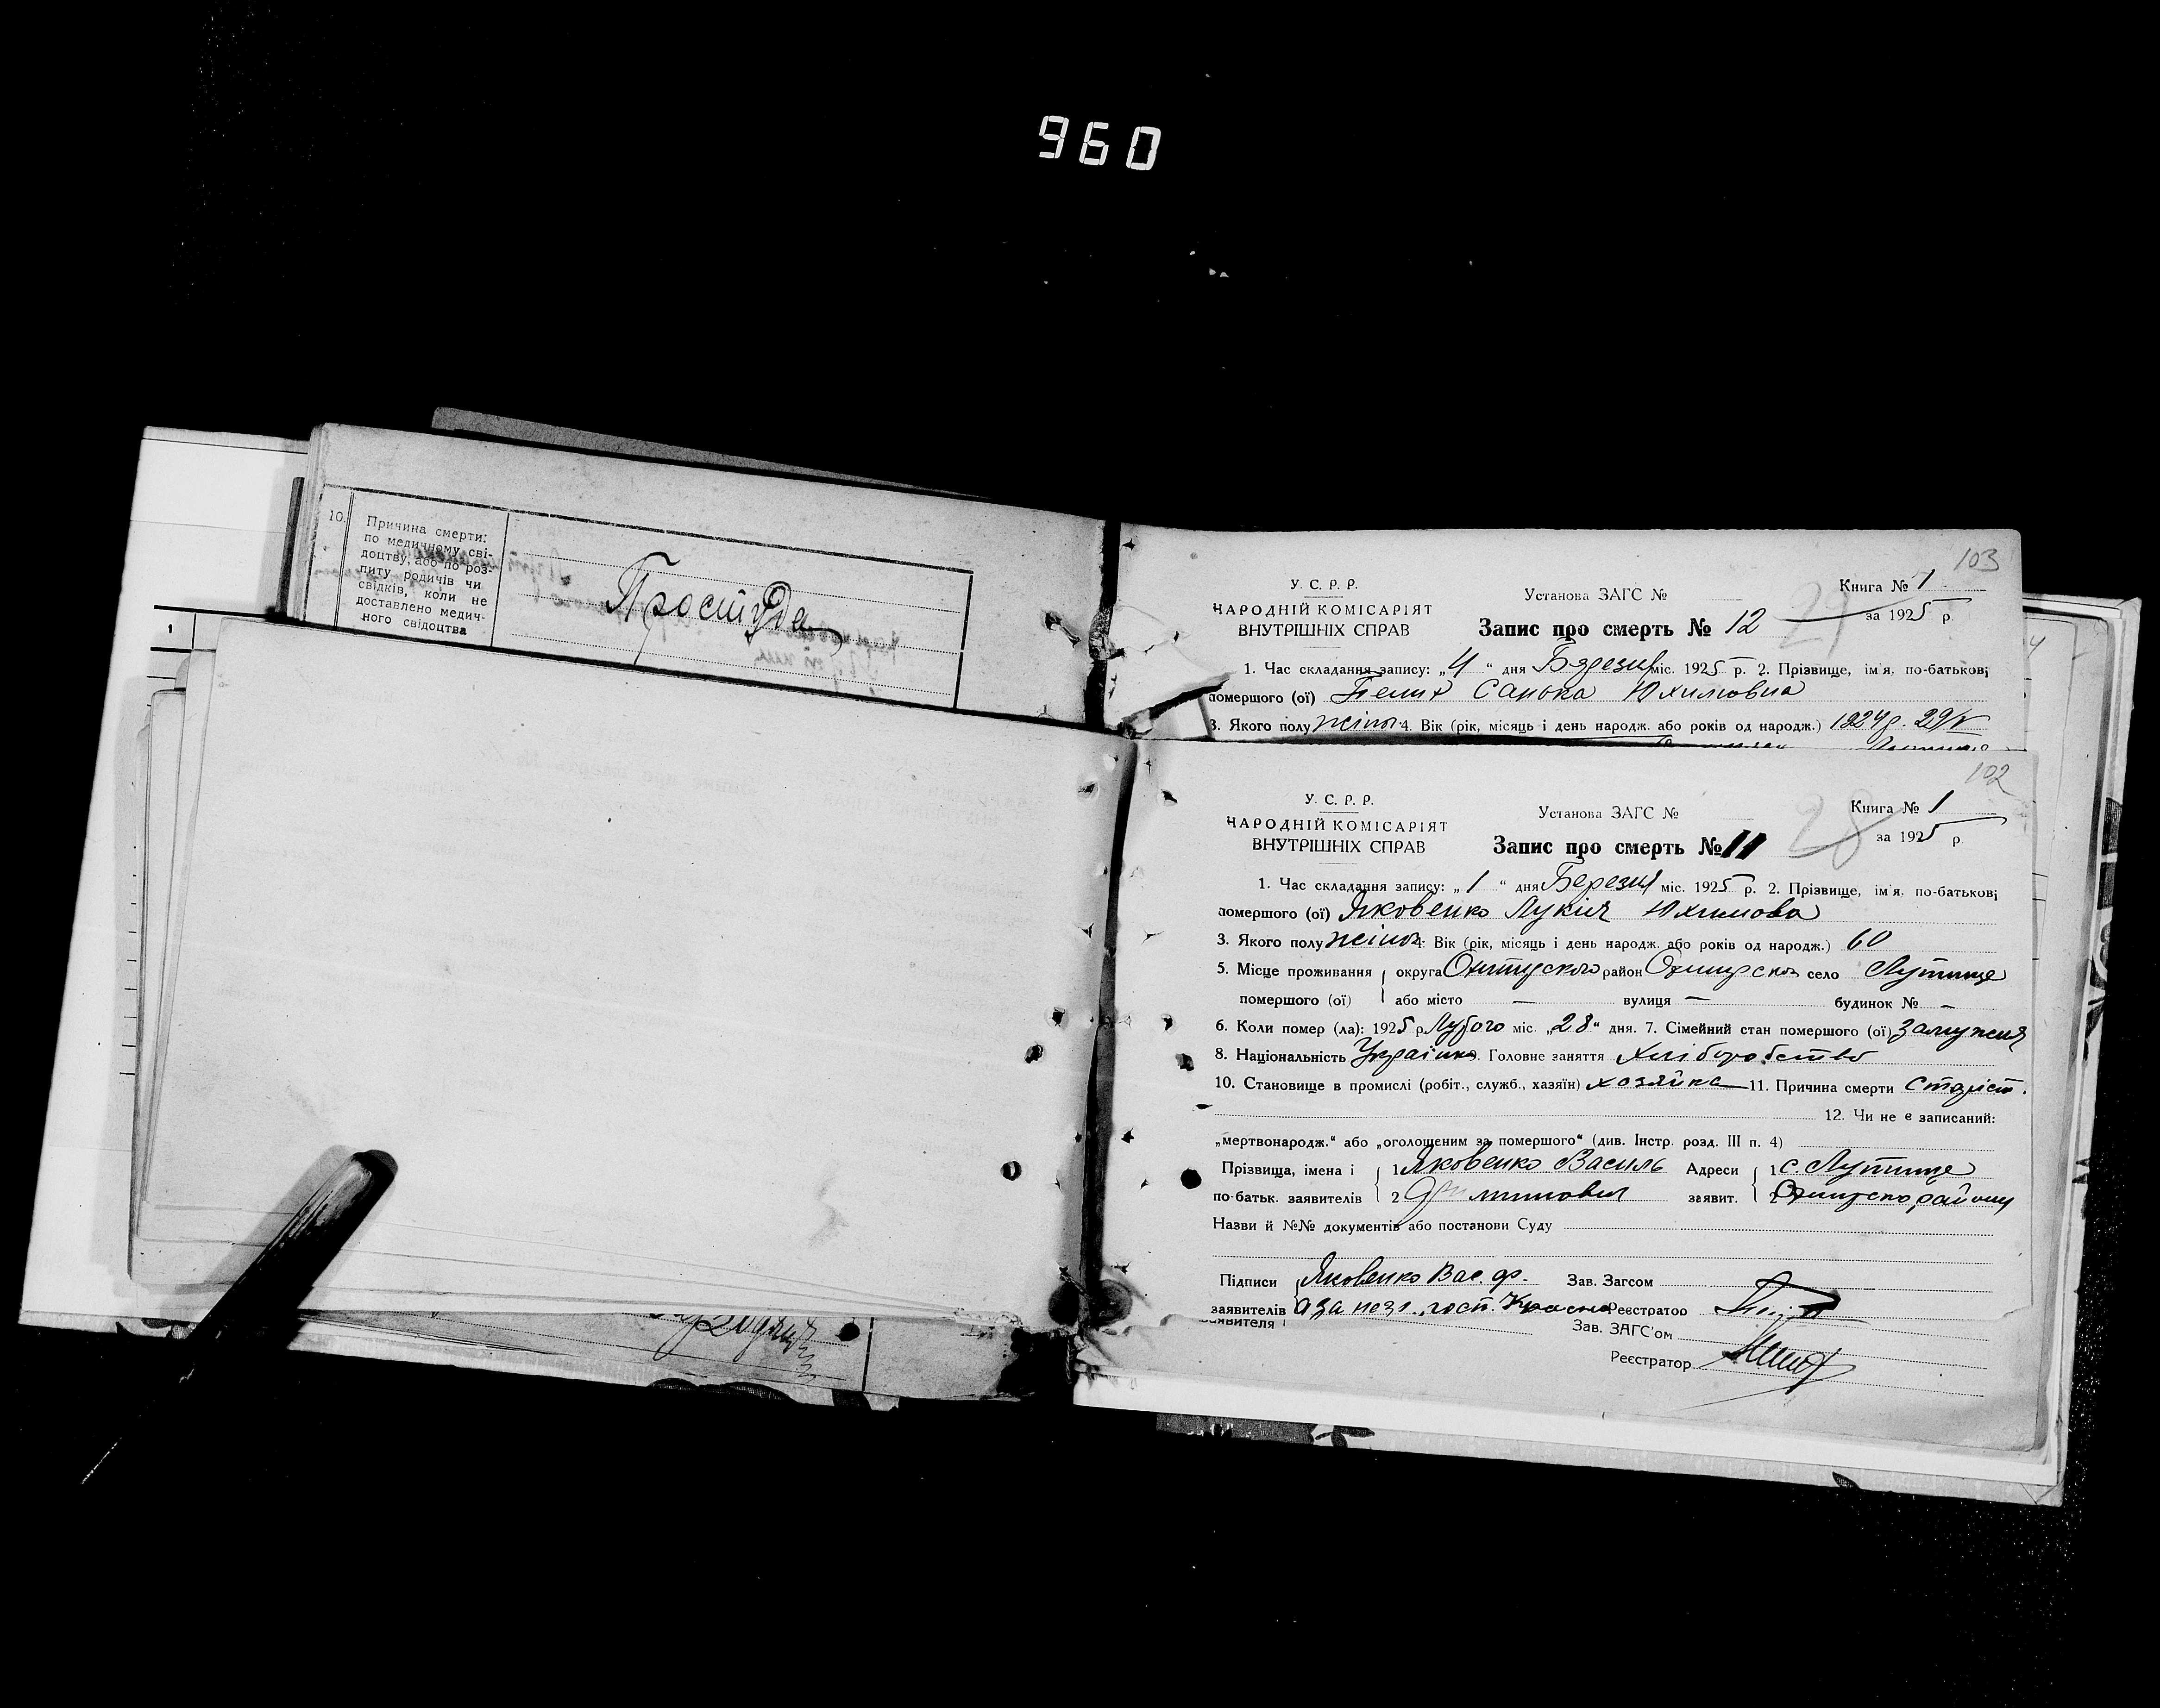 960
10.
Причина смерти:
по медичному сві-
доцтву, або по роз-
питу родичів чи
свідків, коли не
доставлено медич-
ного свідоцтва
Простуда
1
103
У. С. Р. Р.
НАРОДНІЙ КОМІСАРІЯТ
ВНУТРІШНІХ СПРАВ
Установа ЗАГС №
Книга № 1
за 1925 р.
Запис про смерть № 12
29
1. Час складання запису: „4“ дня Березня міс. 1925 р. 2. Прізвище, ім'я, по-батькові
помершого (ої) Санька Юхимовна
3. Якого полу жіноч. 4. Вік (рік, місяць і день народж. або років од народж.) 1924 р. 29/V
102
У. С. Р. Р.
НАРОДНІЙ КОМІСАРІЯТ
ВНУТРІШНІХ СПРАВ
Установа ЗАГС №
Книга № 1
за 1925 р.
Запис про смерть № 11
28
1. Час складання запису: „1“ дня Березня міс. 1925 р. 2. Прізвище, ім'я, по-батькові
помершого (ої) Яковенко Лукія Юхимова
3. Якого полу жіноч. 4. Вік (рік, місяць і день народж. або років од народж.) 60
5. Місце проживання округа район село Лутище
помершого (ої) або місто — вулиця — будинок № —
6. Коли помер (ла): 1925 р. Лютого міс. „28“ дня. 7. Сімейний стан помершого (ої) Замужня
8. Національність Українка 9. Головне заняття Хліборобство
10. Становище в промислі (робіт., служб., хазяїн) хозяйка 11. Причина смерти старіст.
12. Чи не є записаний:
„мертвонародж.“ або „оголошеним за помершого“ (див. Інстр. розд. III п. 4)
Прізвища, імена і 1 Яковенко Василь Адреси 1 с. Лутище
по-батьк. заявителів 2 заявит. 2 району
Назви й №№ документів або постанови Суду
Підписи Яковенко Вас. Зав. Загсом
заявителів а за негр. росп. Реєстратор
заявителя
Зав. ЗАГС'ом
Реєстратор